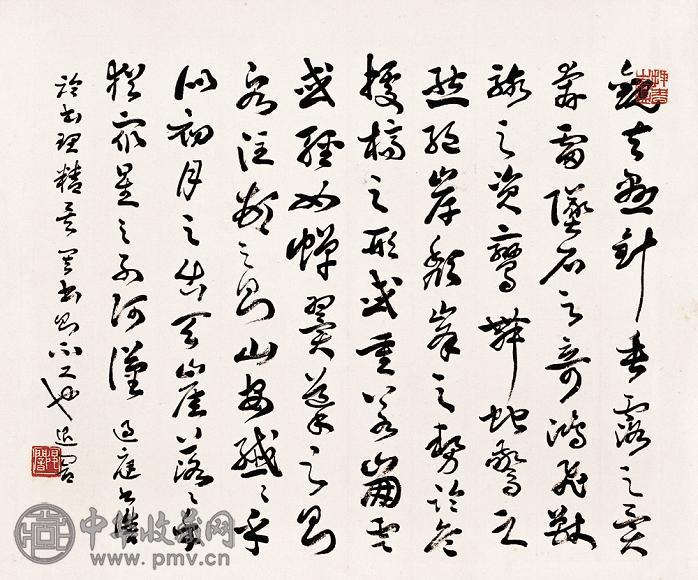 觀夫懸針垂露之異
奔雷墜石之奇鴻飛獸
駭之資鸞舞蛇驚之
態絕岸頹峰之勢臨危
據槁之形或重若崩雲
或輕如蟬翼導之則
泉注頓之則山安纖〻乎
似初月之出天崖落〻乎
猶眾星之列河漢 過庭書譜
論書理精書則不工也
中华收藏网
www.pmv.cn